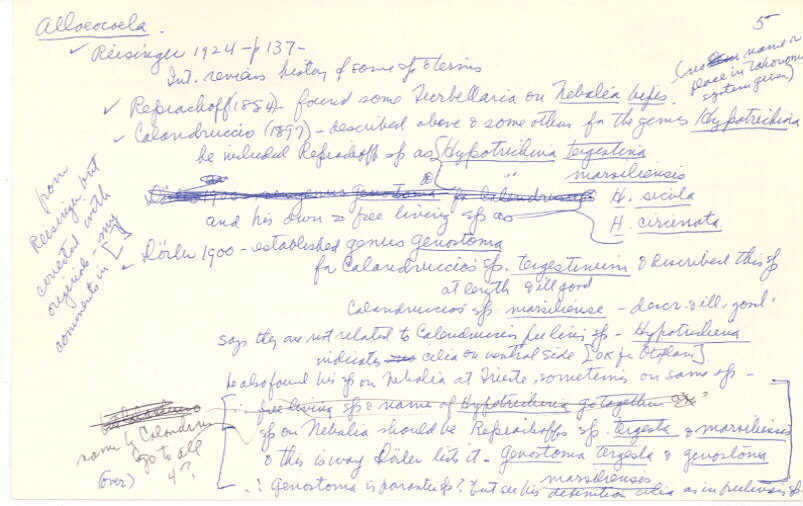 Alloeocoela. 5
✓ Reisinger 1924 - p 137 -
Int. reviews history of some sp & terms
(no name or place in taxonomic system given)
✓ Repiachoff (1884) - found some Turbellaria on Nebalia bipes.
✓ Calandruccio (1897) - described above & some others for the genus Hypotrichina
he included Repiachoff sp as Hypotrichina tergestina
" marsiliensis
H. sicula
and his own 2 free living sp as
H. circinata
from Reisinger but corrected with originals - my comments in [ ]
✓ Dörler 1900 - established genus genostoma
for Calandruccio's sp. tergestinum & described this sp
at length & ill good
Calandruccio's sp marsiliense - descr. & ill. good.
says they are not related to Calandruccios free living sp - Hypotrichina
indicates cilia on ventral side [OK for Otoplanid]
he also found his sp on Nebalia at Trieste, sometimes on same sp -
free living sp & name of Hypotrichina go together ?
name by Calandruc go to all 4?
(over)
sp on Nebalia should be Repiachoffs sp. tergesta & marsiliensis
& this is way Dörler lists it - Genostoma tergesta & genostoma
marsiliensis
∴ Genostoma is parasite sp? but see his definition cilia as in freeliving sp.